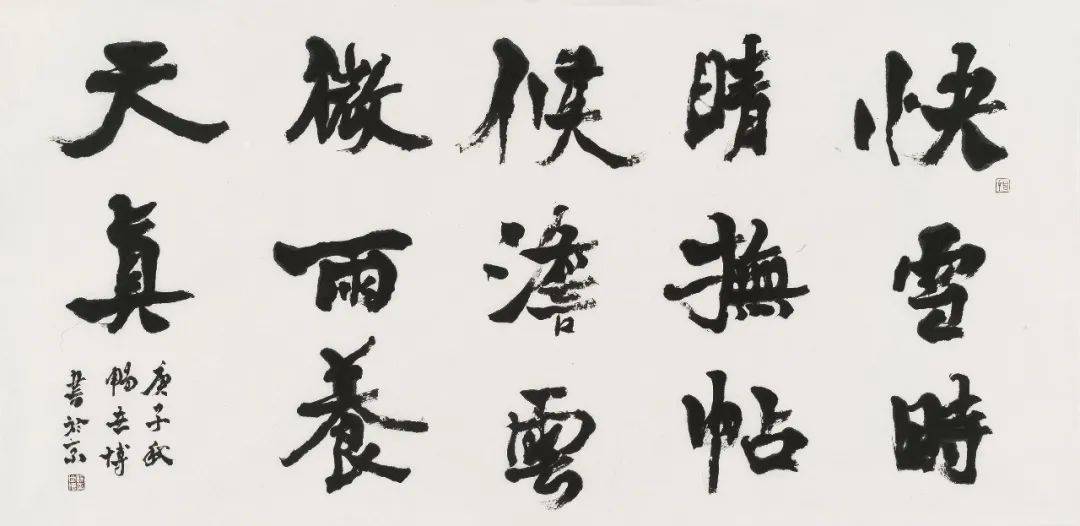 快雪時
晴撫帖
候澹雲
微雨養
天真
庚子秋
暢 博
書於京